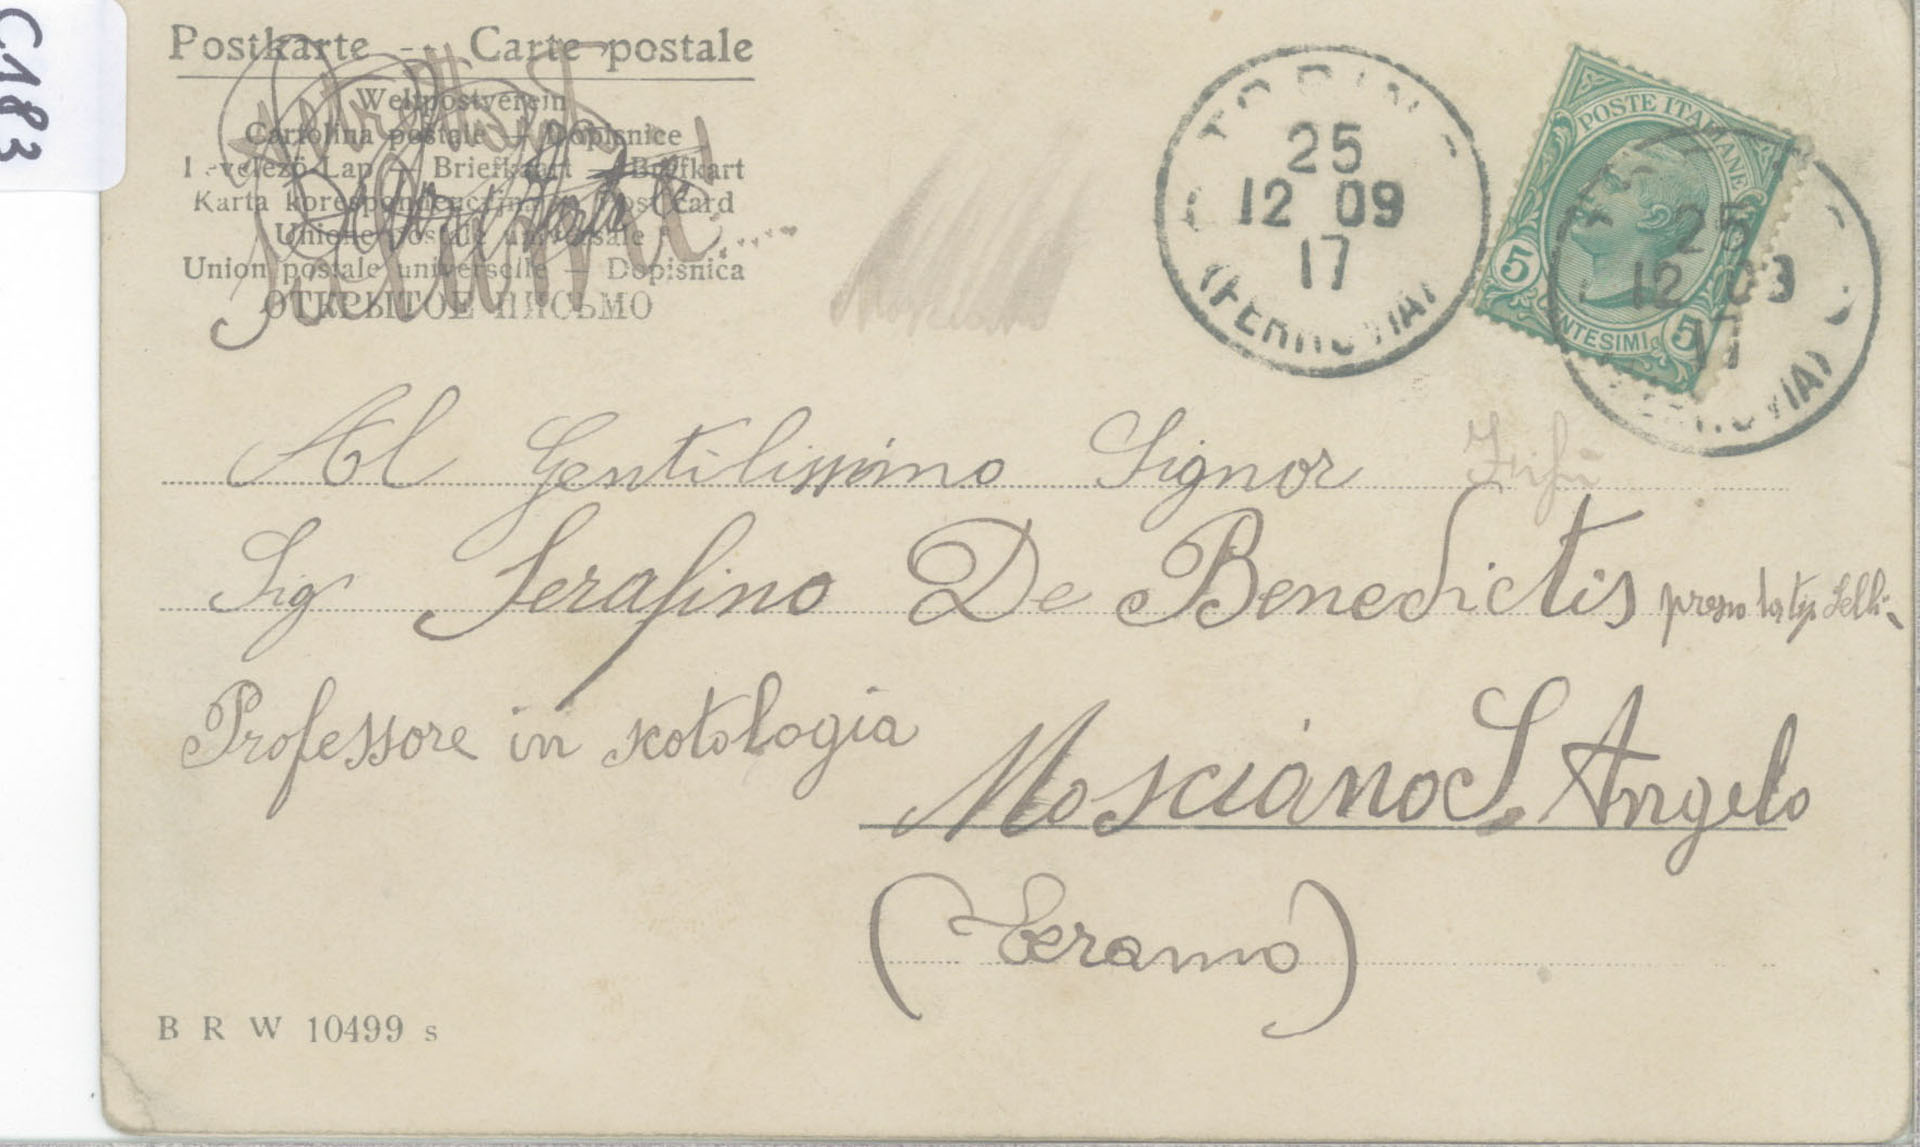 C183
Postkarte — Carte postale
Weltpostverein
Cartolina postale — Dopisnice
Levelező-Lap — Briefkaart — Brefkart
Karta korespondencyjna — Post card
Unione postale universale
Union postale universelle — Dopisnica
ОТКРЫТОЕ ПИСЬМО
TORINO
25
12 09
17
(FERROVIA)
POSTE ITALIANE
5 CENTESIMI 5
25
12 09
17
(FERROVIA)
Al Gentilissimo Signor
Sig Serafino De Benedictis presso la tip
Professore in scotologia
Mosciano S. Angelo
(Teramo)
B R W 10499 s